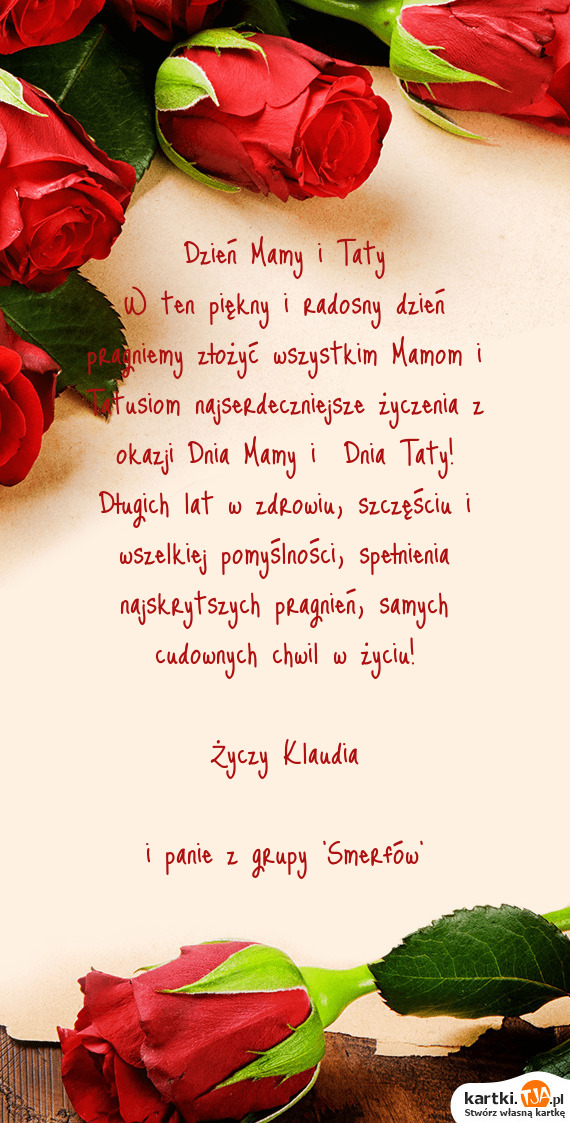 Dzień Mamy i Taty
W ten piękny i radosny dzień
pragniemy złożyć wszystkim Mamom i
Tatusiom najserdeczniejsze życzenia z
okazji Dnia Mamy i Dnia Taty!
Długich lat w zdrowiu, szczęściu i
wszelkiej pomyślności, spełnienia
najskrytszych pragnień, samych
cudownych chwil w życiu!
Życzy Klaudia
i panie z grupy "Smerfów"
kartki.TJA.pl
Stwórz własną kartkę